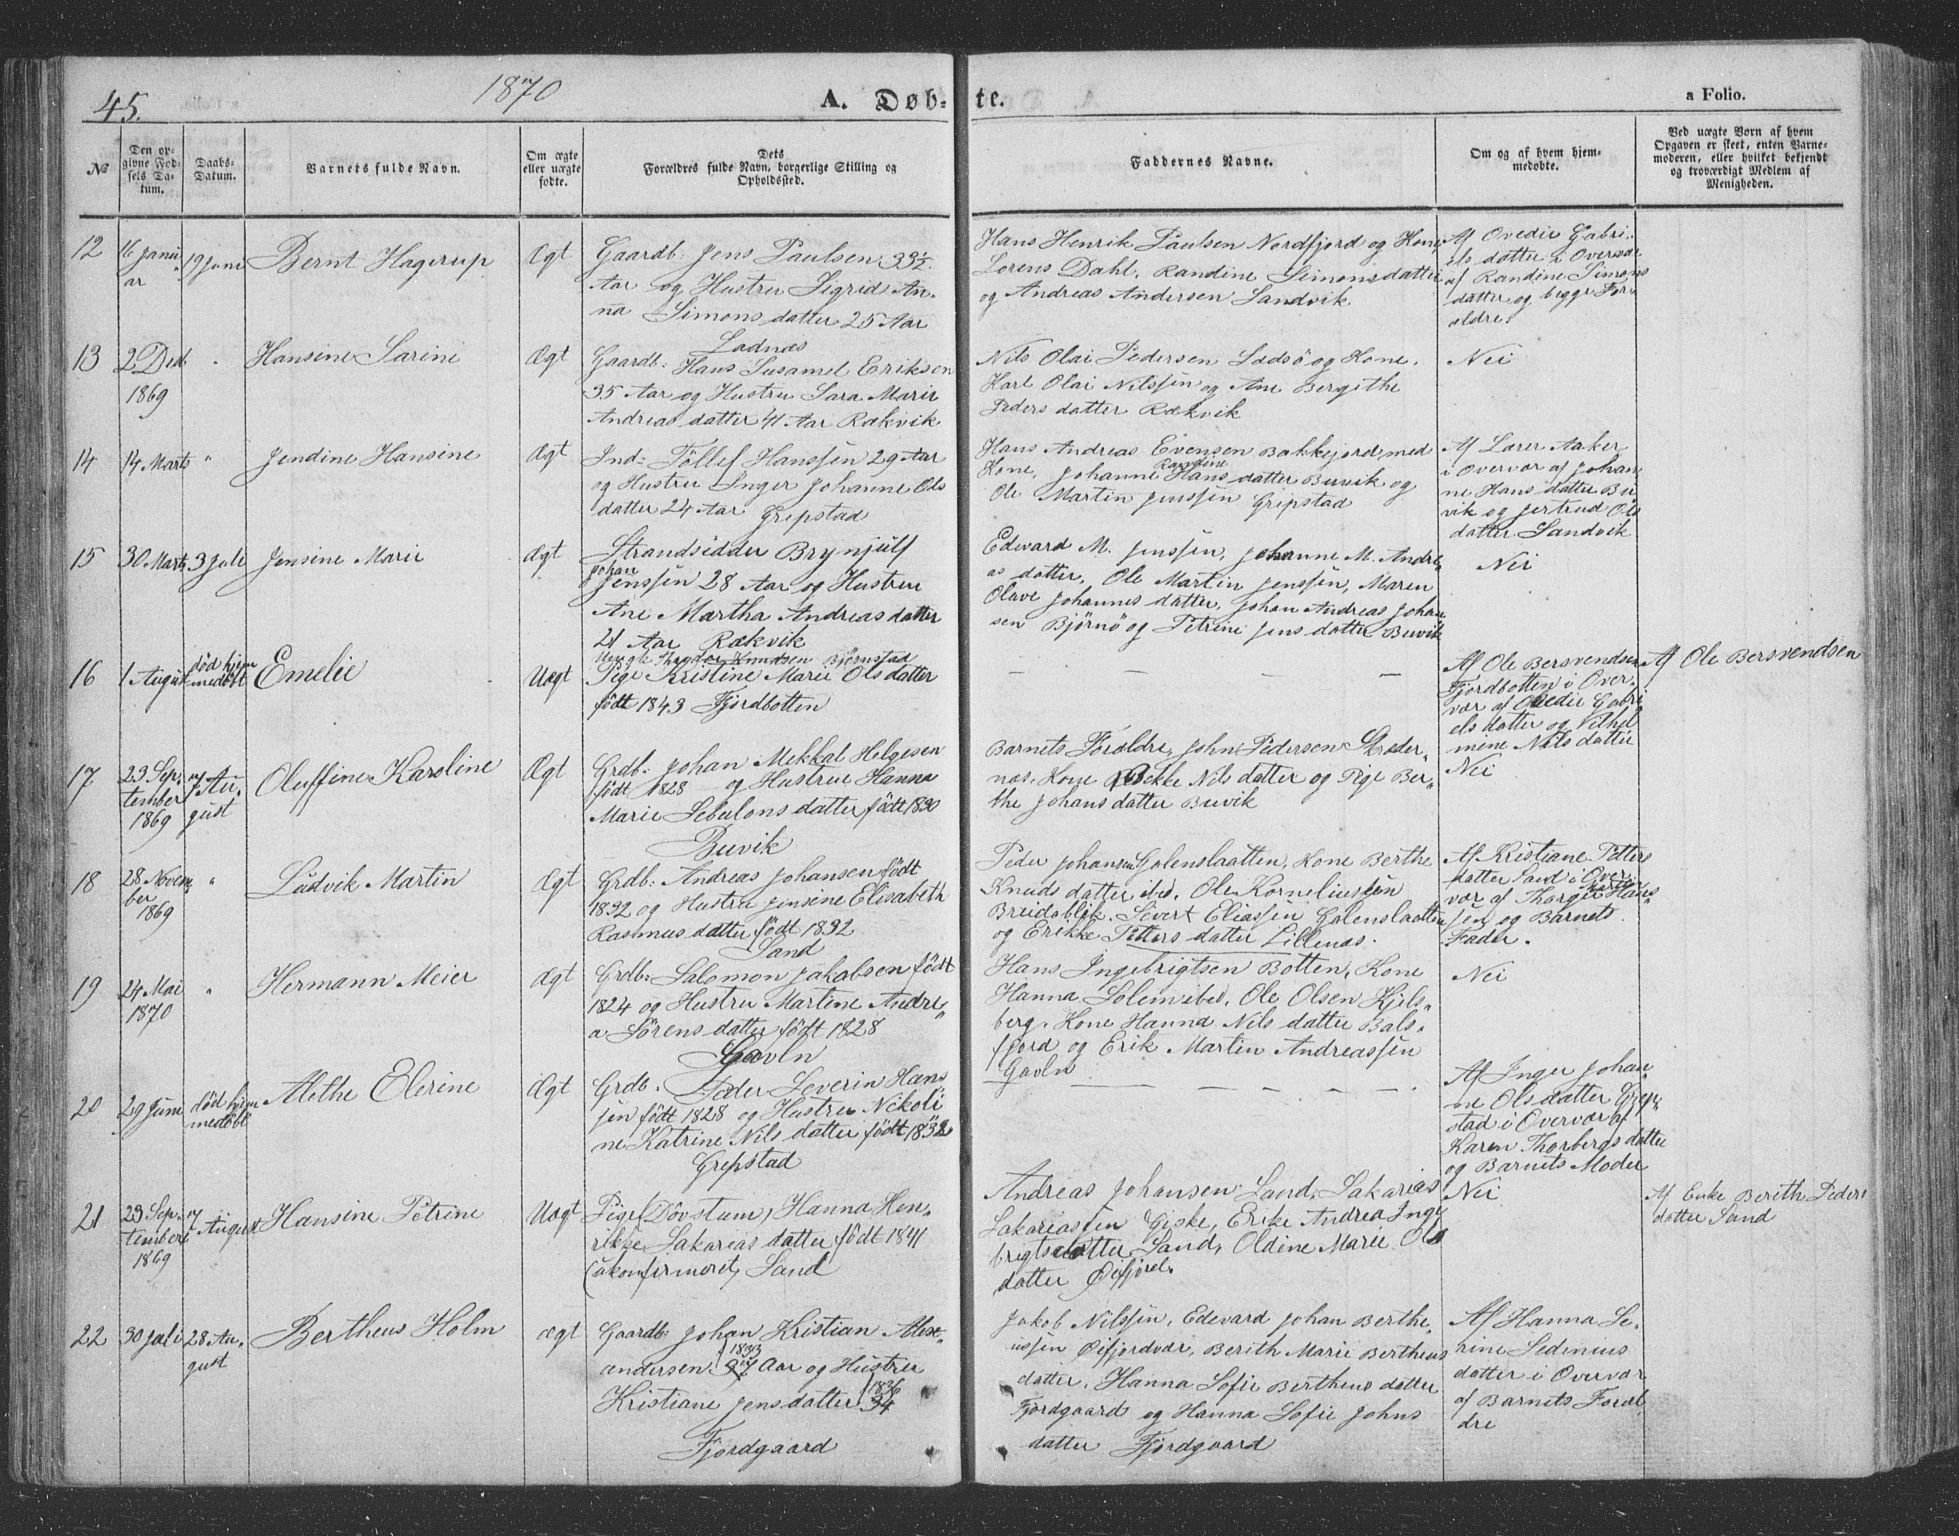 45.
1870
A. Døb-te.
a Folio.
№
Den op-
givne Fød-
sels Da-
tum.
Daabs-
Datum.
Barnets fulde Navn.
Om ægte
eller uægte
fødte.
Dets
Forældres fulde Navn, borgerlige Stilling og
Opholdssted.
Faddernes Navne.
Om og af hvem hjem-
medøbte.
Ved uægte Børn af hvem
Opgaven er skeet, enten Barne-
moderen, eller hvilket bekjendt
og troværdigt Medlem af
Menigheden.
12
16 Janu
ar
19 Juni
Bernt Hagerup
Ægt
Gaardb: Jens Paulsen 33½
Aar og Hustru Sigrid An-
na Simonsdatter 25 Aar
Ladnæs
Hans Henrik Paulsen Nordfjord og Kone,
Lorens Dahl, Randine Simonsdatter
og Andreas Andersen Sandvik.
Af Ovedie Gabri-
els datter i Overvær
af Randine Simons
datter og begge For-
ældre.
13
2 Deb
1869
"
Hansine Sarine
Ægt
Gaardb: Hans Susamel Eriksen
35 Aar og Hustru Sara Marie
Andreas datter 41 Aar Rækvik
Nils Olai Pedersen Ladsö og Kone.
Karl Olai Nilssen og Ane Bergithe
Peders datter Rækvik
Nei
14
14 Marts
"
Jendine Hansine
Ægt
Ind: Töllef Hanssen 29 Aar
og Hustru Inger Johanne Ols
datter 24 Aar Gripstad
Hans Andreas Evensen Bakkejord med
Kone, Johanne Randine Hans datter Buvik og
Ole Martin Jenssen Gripstad
Af Lærer Aaker
i Overvær af Johan
ne Hans datter Bu
vik og Jertrud Ols
datter Sandvik
15
30 Marts
3 Juli
Jensine Marie
Ægt
Strandsidder Brynjulf
Johan
Jenssen 28 Aar og Hustru
Ane Martha Andreas datter
21 Aar Rækvik
Edward M. Jenssen, Johanne M. Andre-
as datter, Ole Martin Jenssen, Maren
Olave Johannes datter, Johan Andreas Johan
sen Björnö og Petrine Jens datter Buvik
Nei
16
1 August
död hjem
medöbt
Emelie
Uægt
Knudsen Björnstad
Pige Kristine Marie Ols datter
födt 1843 Fjordbotten
— — — —
Af Ole Bersvendsen
Fjordbotten i Over-
vær af Ovedie Gabri
els datter og Vilhel
mine Nils datter
Af Ole Bersvendsen
17
23 Sep-
tember
1869
7 Au-
gust
Oluffine Karoline
Ægt
Grdb. Johan Mekkal Helgesen
födt 1828 og Hustru Hanna
Marie Sebulons datter födt 1830
Buvik
Barnets Foreldre, John Pedersen Skoder-
næs, Kone Rebekke Nils datter og Pige Ber-
the Johans datter Buvik
Nei
18
28 Novem
ber
1869
"
Ludvik Martin
Ægt
Grdb: Andreas Johansen födt
1832 og Hustru Jensine Elisabeth
Rasmus datter födt 1832
Sand
Peder Johansen Galenslaatten, Kone Berthe
Knuds datter ibid, Ole Korneliussen
Breidablik, Sivert Eliassen Galenslaatten
og Erikke Petters datter Lillenæs.
Af Kristiane Petters
datter Sand i Over-
vær af Thorger Hans-
sen og Barnets
Fader.
19
24 Mai
1870
"
Hermann Meier
Ægt
Grdb: Salomon Jakobsen födt
1824 og Hustru Martine Andre-
a Sörens datter födt 1828
Gavln
Hans Ingebrigtsen Botten, Kone
Hanna Solem ibid, Ole Olsen Kjels-
berg, Kone Hanna Nils datter Bals-
fjord og Erik Martin Andreassen
Gavln
Nei
20
29 Juni
död hjem
medöbt
Alethe Elerine
Ægt
Grdb. Peder Severin Hans
sen födt 1828 og Hustru Nikoli
ne Katrine Nils datter födt 1832
Gripstad
— — — —
Af Inger Johan
ne Ols datter Grep-
stad i Overvær af
Karen Thorbergs datter
og Barnets Moder
21
23 Sep-
tember
1869
7
August
Hansine Petrine
Uægt
Pige (Dövstum) Hanna Hen-
rikke Sakarias datter födt 1841
(ukonfirmeret) Sand
Andreas Johansen Sand, Sakarias
Sakariassen Giske, Erike Andrea Inge
brigtsdatter Sand, Oldine Marie Ols
datter Öifjord.
Nei
Af Enke Berith Peders
datter Sand
22
30 Juli
28 Au-
gust
Bertheus Holm
Ægt
Gaardb. Johan Kristian Alex-
andersen 37 1833 Aar og Hustru
Kristiane Jens datter 34 1836
Fjordgaard
Jakob Nilssen, Edevard Johan Berthe-
ussen Öifjordvær, Berith Marie Bertheus
datter, Hanna Sofie Bertheus datter
Fjordgaard og Hanna Sofie Johns
datter Fjordgaard
Af Hanna Se-
rine Sedenius
datter i Overvær
af Barnets Foræl
dre